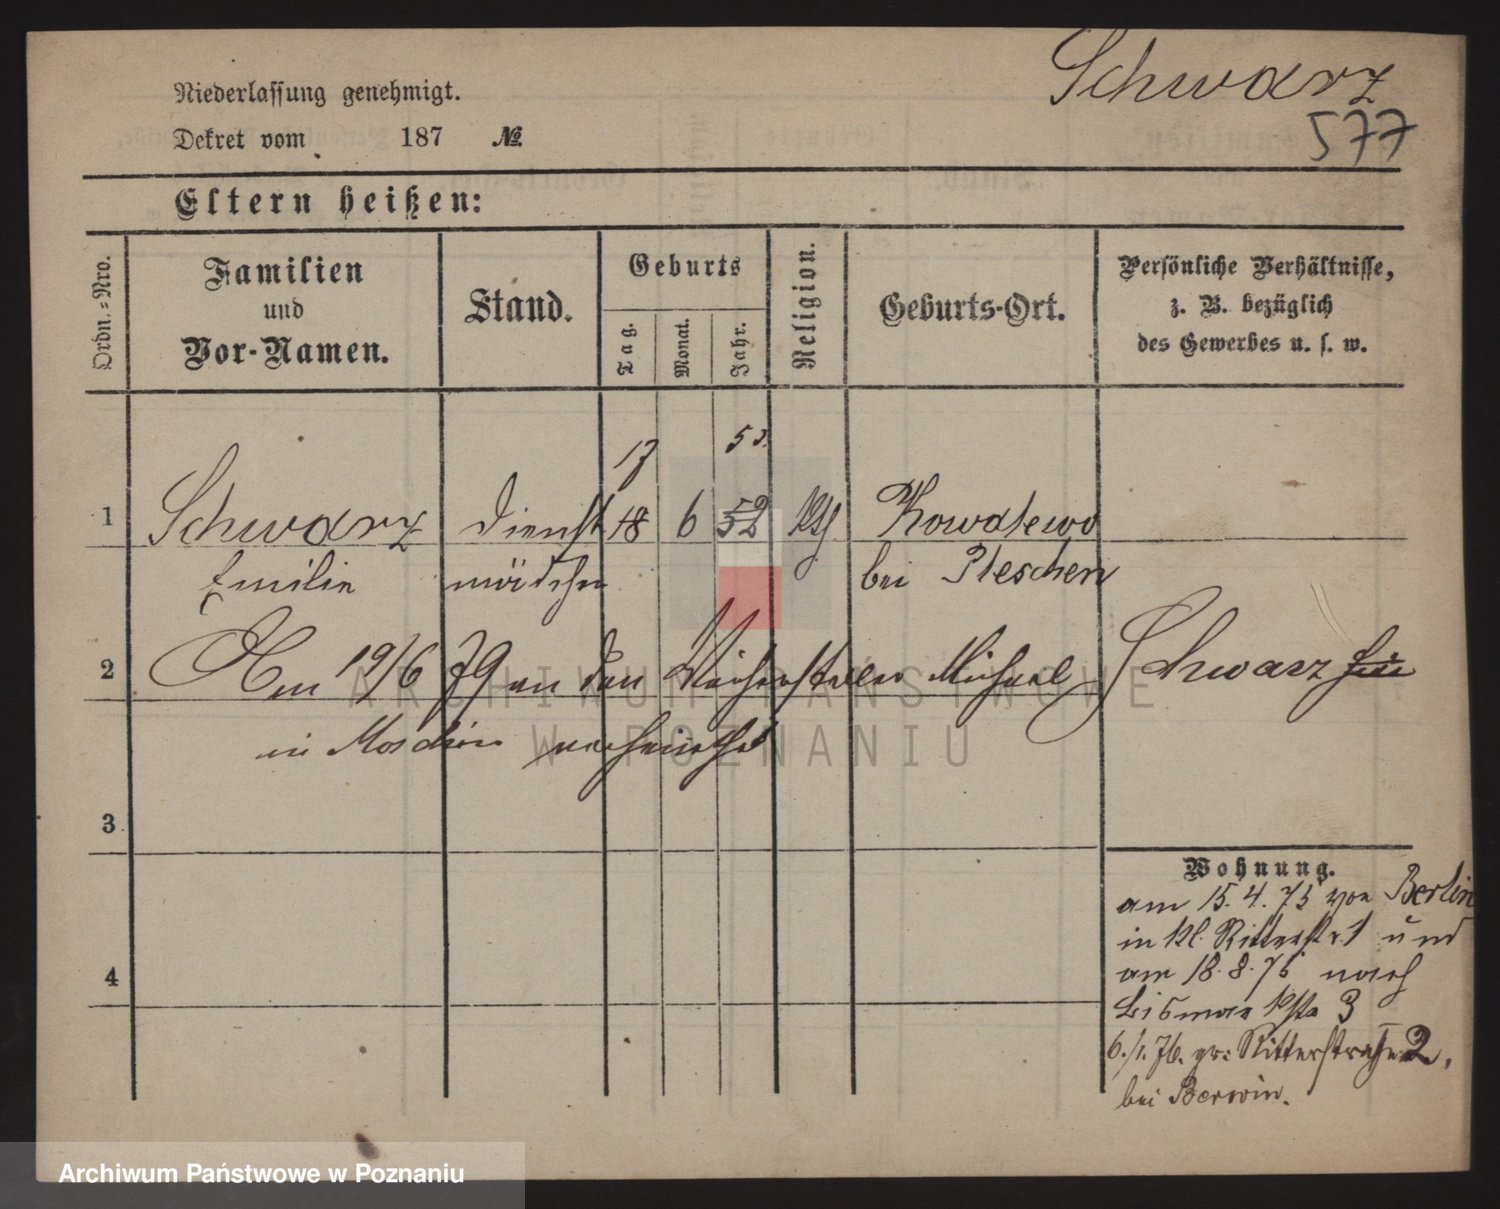 Schwarz
577
Niederlassung genehmigt.
Dekret vom 187 №
Eltern heißen:
Ordn.-Nro.
Familien
und
Vor-Namen.
Stand.
Geburts
Tag.
Monat.
Jahr.
Religion.
Geburts-Ort.
Persönliche Verhältnisse,
z. B. bezüglich
des Gewerbes u. s. w.
17 53.
1 Schwarz Dienst 18 6 52 Kowalewo
Emilie mädchen bei Pleschen
2 Am 19/6 79 an den Michael Schwarz
in verheirathet
3
4
Wohnung.
am 15. 4. 75 von Berlin
in kl. Ritterstr. 1 und
am 18. 8. 75 nach
Bismarkstr 3
6./1. 76. gr: Ritterstraße 2,
bei Berwin.
ARCHIWUM PAŃSTWOWE
W POZNANIU
Archiwum Państwowe w Poznaniu